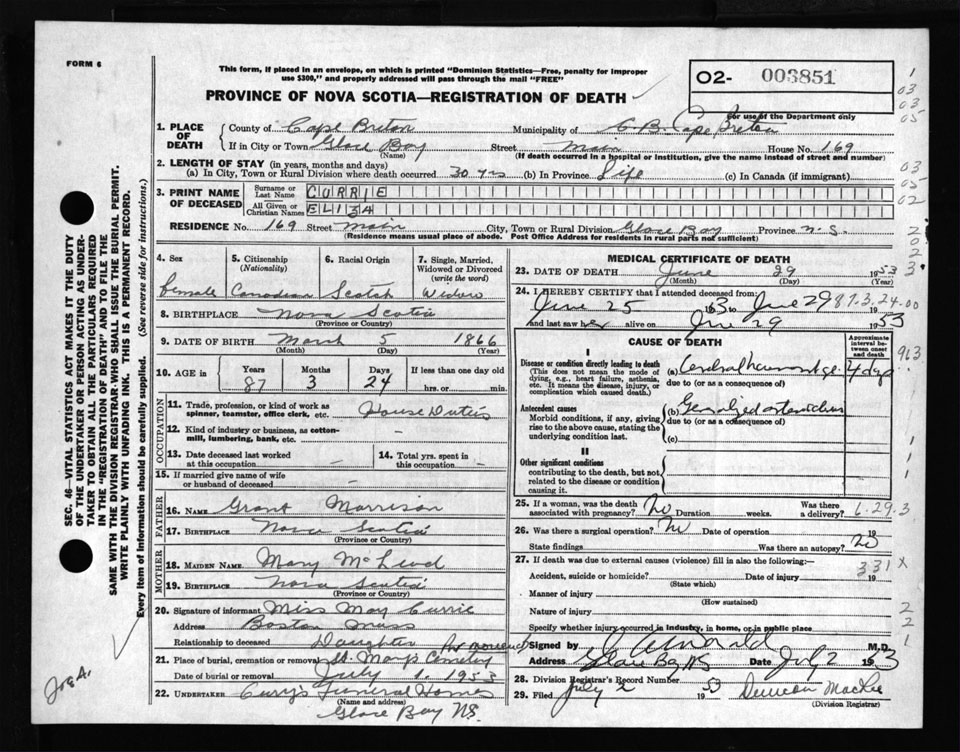 FORM 6
This form, if placed in an envelope, on which is printed "Dominion Statistics—Free, penalty for improper
use $300," and properly addressed will pass through the mail "FREE"
PROVINCE OF NOVA SCOTIA—REGISTRATION OF DEATH
02- 003851
For use of the Department only
1. PLACE OF DEATH
County of Cape Breton Municipality of C. B. Cape Breton
If in City or Town Glace Bay Street Main House No. 169
(Name) (If death occurred in a hospital or institution, give the name instead of street and number)
2. LENGTH OF STAY (in years, months and days)
(a) In City, Town or Rural Division where death occurred 30 yrs (b) In Province Life (c) In Canada (if immigrant)
3. PRINT NAME OF DECEASED
Surname or Last Name CURRIE
All Given or Christian Names ELIZA
RESIDENCE No. 169 Street Main City, Town or Rural Division Glace Bay Province N.S.
(Residence means usual place of abode. Post Office Address for residents in rural parts not sufficient)
4. Sex female
5. Citizenship (Nationality) Canadian
6. Racial Origin Scotch
7. Single, Married, Widowed or Divorced (write the word) Widow
8. BIRTHPLACE Nova Scotia
(Province or Country)
9. DATE OF BIRTH March 5 1866
(Month) (Day) (Year)
10. AGE in Years 87 Months 3 Days 24 If less than one day old hrs. or min.
OCCUPATION
11. Trade, profession, or kind of work as spinner, teamster, office clerk, etc. House Duties
12. Kind of industry or business, as cotton-mill, lumbering, bank, etc. —
13. Date deceased last worked at this occupation —
14. Total yrs. spent in this occupation —
15. If married give name of wife or husband of deceased —
FATHER
16. NAME Grant Morrison
17. BIRTHPLACE Nova Scotia
(Province or Country)
MOTHER
18. MAIDEN NAME Mary McLeod
19. BIRTHPLACE Nova Scotia
(Province or Country)
20. Signature of informant Miss May Currie
Address Boston Mass
Relationship to deceased Daughter
21. Place of burial, cremation or removal St. Marys Cemetery
Date of burial or removal July 1. 1953
22. UNDERTAKER Curry's Funeral Home
(Name and address)
Glace Bay NS.
MEDICAL CERTIFICATE OF DEATH
23. DATE OF DEATH June 29 1953
(Month) (Day) (Year)
24. I HEREBY CERTIFY that I attended deceased from:
June 25 1953 to June 29 87.3.24.00
and last saw her alive on June 29 1953
CAUSE OF DEATH
Approximate interval between onset and death
I
Disease or condition directly leading to death
(This does not mean the mode of dying, e.g., heart failure, asthenia, etc. It means the disease, injury, or complication which caused death.)
(a) Cerebral haemorrhage 4 days
due to (or as a consequence of)
Antecedent causes
Morbid conditions, if any, giving rise to the above cause, stating the underlying condition last.
(b) Generalized
due to (or as a consequence of)
(c)
II
Other significant conditions
contributing to the death, but not related to the disease or condition causing it.
25. If a woman, was the death associated with pregnancy? No Duration weeks. Was there a delivery? 6.29.3
26. Was there a surgical operation? No Date of operation 19
State findings Was there an autopsy? no
27. If death was due to external causes (violence) fill in also the following:—
331 X
Accident, suicide or homicide? Date of injury 19
(State which)
Manner of injury
(How sustained)
Nature of injury
Specify whether injury occurred in industry, in home, or in public place
Signed by M.D.
Address Glace Bay, NS Date July 2 1953
28. Division Registrar's Record Number
29. Filed July 2 1953 Duncan
(Division Registrar)
SEC. 46—VITAL STATISTICS ACT MAKES IT THE DUTY
OF THE UNDERTAKER OR PERSON ACTING AS UNDER-
TAKER TO OBTAIN ALL THE PARTICULARS REQUIRED
IN THE "REGISTRATION OF DEATH" AND TO FILE THE
SAME WITH THE DIVISION REGISTRAR WHO SHALL ISSUE THE BURIAL PERMIT.
WRITE PLAINLY WITH UNFADING INK. THIS IS A PERMANENT RECORD.
Every item of information should be carefully supplied. (See reverse side for instructions.)
1
03
03
05
03
05
02
2
0
2
3
963
1
1
1
2
2
1